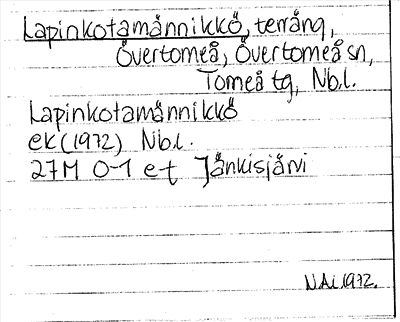 Lapinkotamännikkö, terräng,
Övertorneå, Övertorneå sn,
Torneå tg, Nb.l.
Lapinkotamännikkö
ek (1972) Nb.l.
27M 0-1 e-f Jänkisjärvi
NAi 1972.